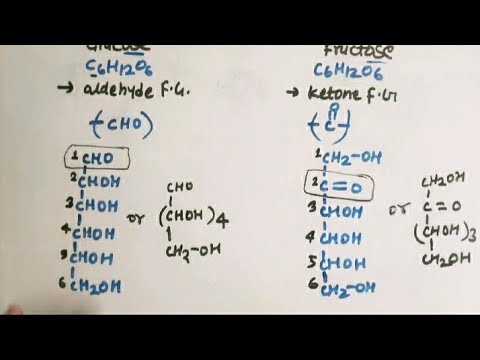 Glucose
C6H12O6
→ aldehyde F.G.
(-CHO)
1 CHO
2 CHOH
3 CHOH
4 CHOH
5 CHOH
6 CH2OH
or
CHO
(CHOH)4
CH2-OH
Fructose
C6H12O6
→ Ketone F.G
O
(-C-)
1 CH2-OH
2 C=O
3 CHOH
4 CHOH
5 CHOH
6 CH2-OH
or
CH2OH
C=O
(CHOH)3
CH2OH